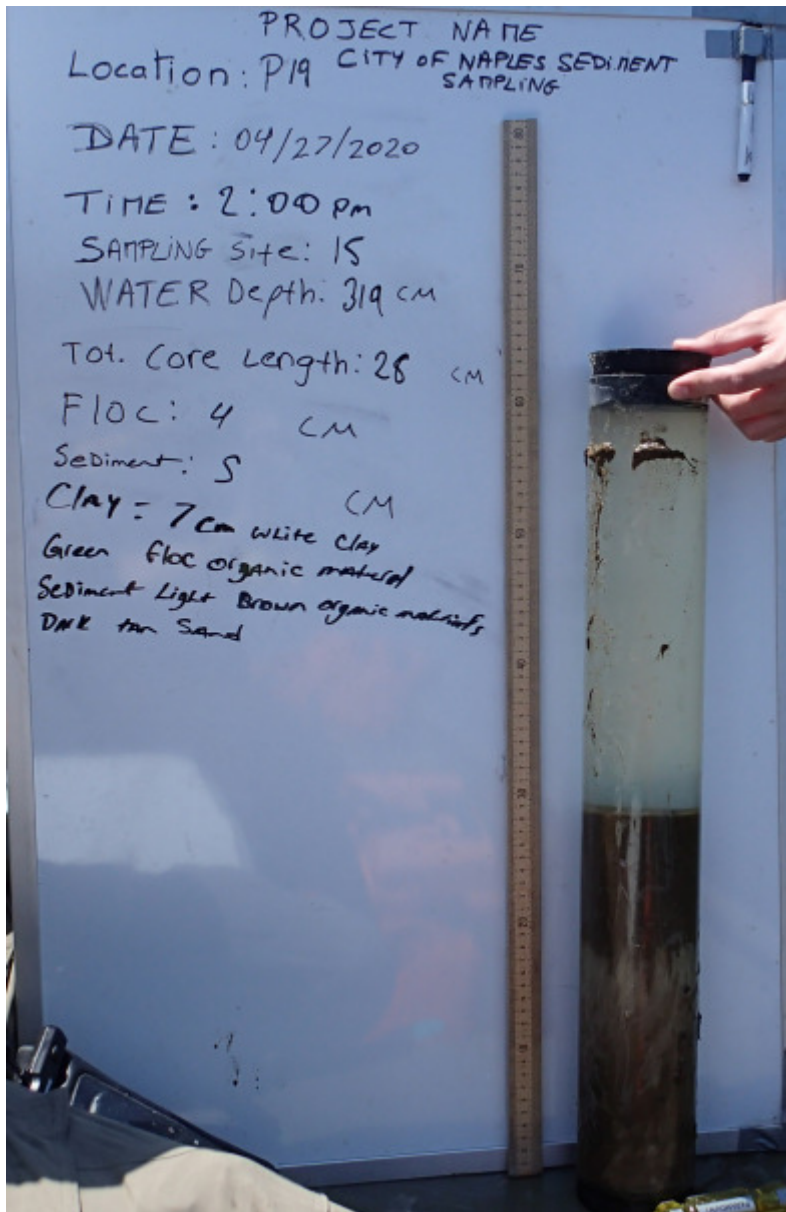 PROJECT NAME
Location: P19 CITY OF NAPLES SEDIMENT SAMPLING
DATE: 04/27/2020
TIME: 2:00 pm
SAMPLING Site: 15
WATER Depth: 319 CM
Tot. Core Length: 28 CM
Floc: 4 CM
Sediment: 5 CM
Clay = 7 cm white clay
Green floc organic material
Sediment Light Brown organic materials
Dark tan Sand
80
70
60
50
40
30
20
10